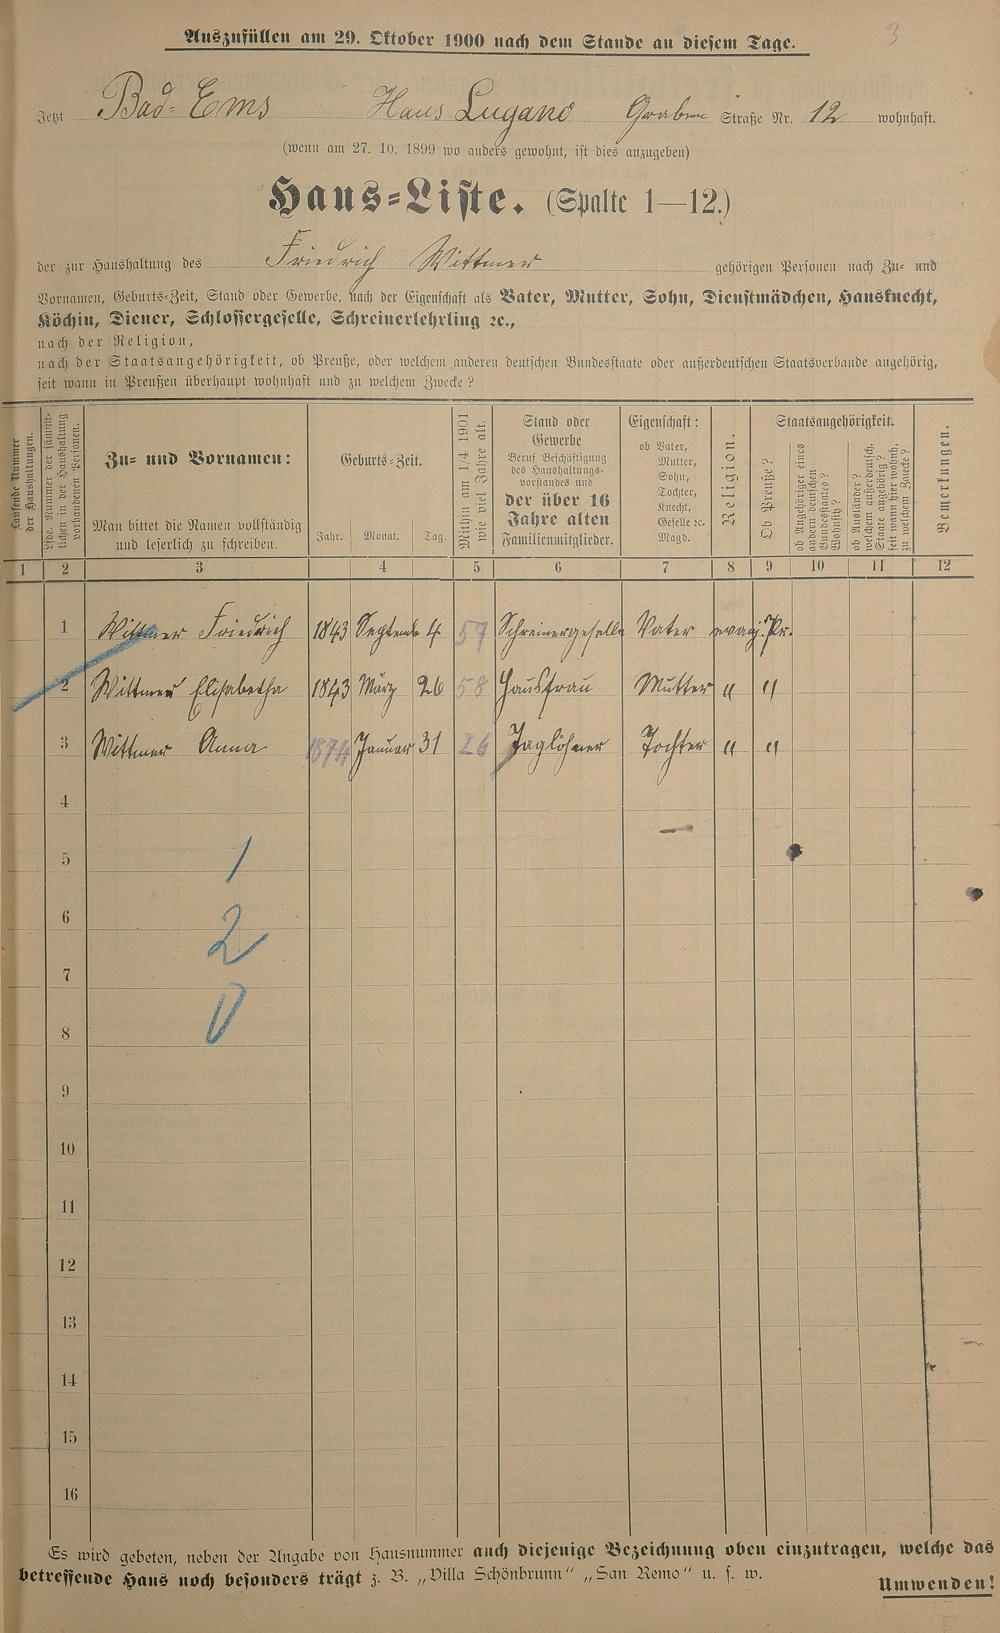 3
Auszufüllen am 29. Oktober 1900 nach dem Stande an diesem Tage.
Jetzt Bad-Ems Haus Lugano Graben Straße Nr. 12 wohnhaft.
(wenn am 27. 10. 1899 wo anders gewohnt, ist dies anzugeben)
Haus-Liste. (Spalte 1—12.)
der zur Haushaltung des Friedrich Wittmer gehörigen Personen nach Zu- und
Vornamen, Geburts-Zeit, Stand oder Gewerbe, nach der Eigenschaft als Vater, Mutter, Sohn, Dienstmädchen, Hausknecht,
Köchin, Diener, Schlossergeselle, Schreinerlehrling ꝛc.,
nach der Religion,
nach der Staatsangehörigkeit, ob Preuße, oder welchem anderen deutschen Bundesstaate oder außerdeutschen Staatsverbande angehörig,
seit wann in Preußen überhaupt wohnhaft und zu welchem Zwecke?
Laufende Nummer
der Haushaltungen.
Lfde. Nummer der sämmt-
lichen in der Haushaltung
vorhandenen Personen.
Zu- und Vornamen:
Man bittet die Namen vollständig
und leserlich zu schreiben.
Geburts-Zeit.
Jahr. Monat. Tag.
Mithin am 1/4 1901
wie viel Jahre alt.
Stand oder
Gewerbe
Beruf Beschäftigung
des Haushaltungs-
vorstandes und
der über 16
Jahre alten
Familienmitglieder.
Eigenschaft:
ob Vater,
Mutter,
Sohn,
Tochter,
Knecht,
Geselle ꝛc.
Magd.
Religion.
Staatsangehörigkeit.
Ob Preuße?
ob Angehöriger eines
andern deutschen
Bundesstaates?
Wohnsitz?
ob Ausländer?
welchem außerdeutsch.
Staate angehörig?
seit wann hier wohnh.
zu welchem Zwecke?
Bemerkungen.
1 2 3 4 5 6 7 8 9 10 11 12
1 Wittmer Friedrich 1843 Septemb 4 57 Schreinergeselle Vater evang. Pr.
2 Wittmer Elisabetha 1843 März 26 58 Hausfrau Mutter " "
3 Wittmer Anna 1874 Januar 31 26 Taglöhner Tochter " "
4
5 1
6 2
7
8 0
9
10
11
12
13
14
15
16
Es wird gebeten, neben der Angabe von Hausnummer auch diejenige Bezeichnung oben einzutragen, welche das
betreffende Haus noch besonders trägt z. B. „Villa Schönbrunn“ „San Remo“ u. s. w.
Umwenden!